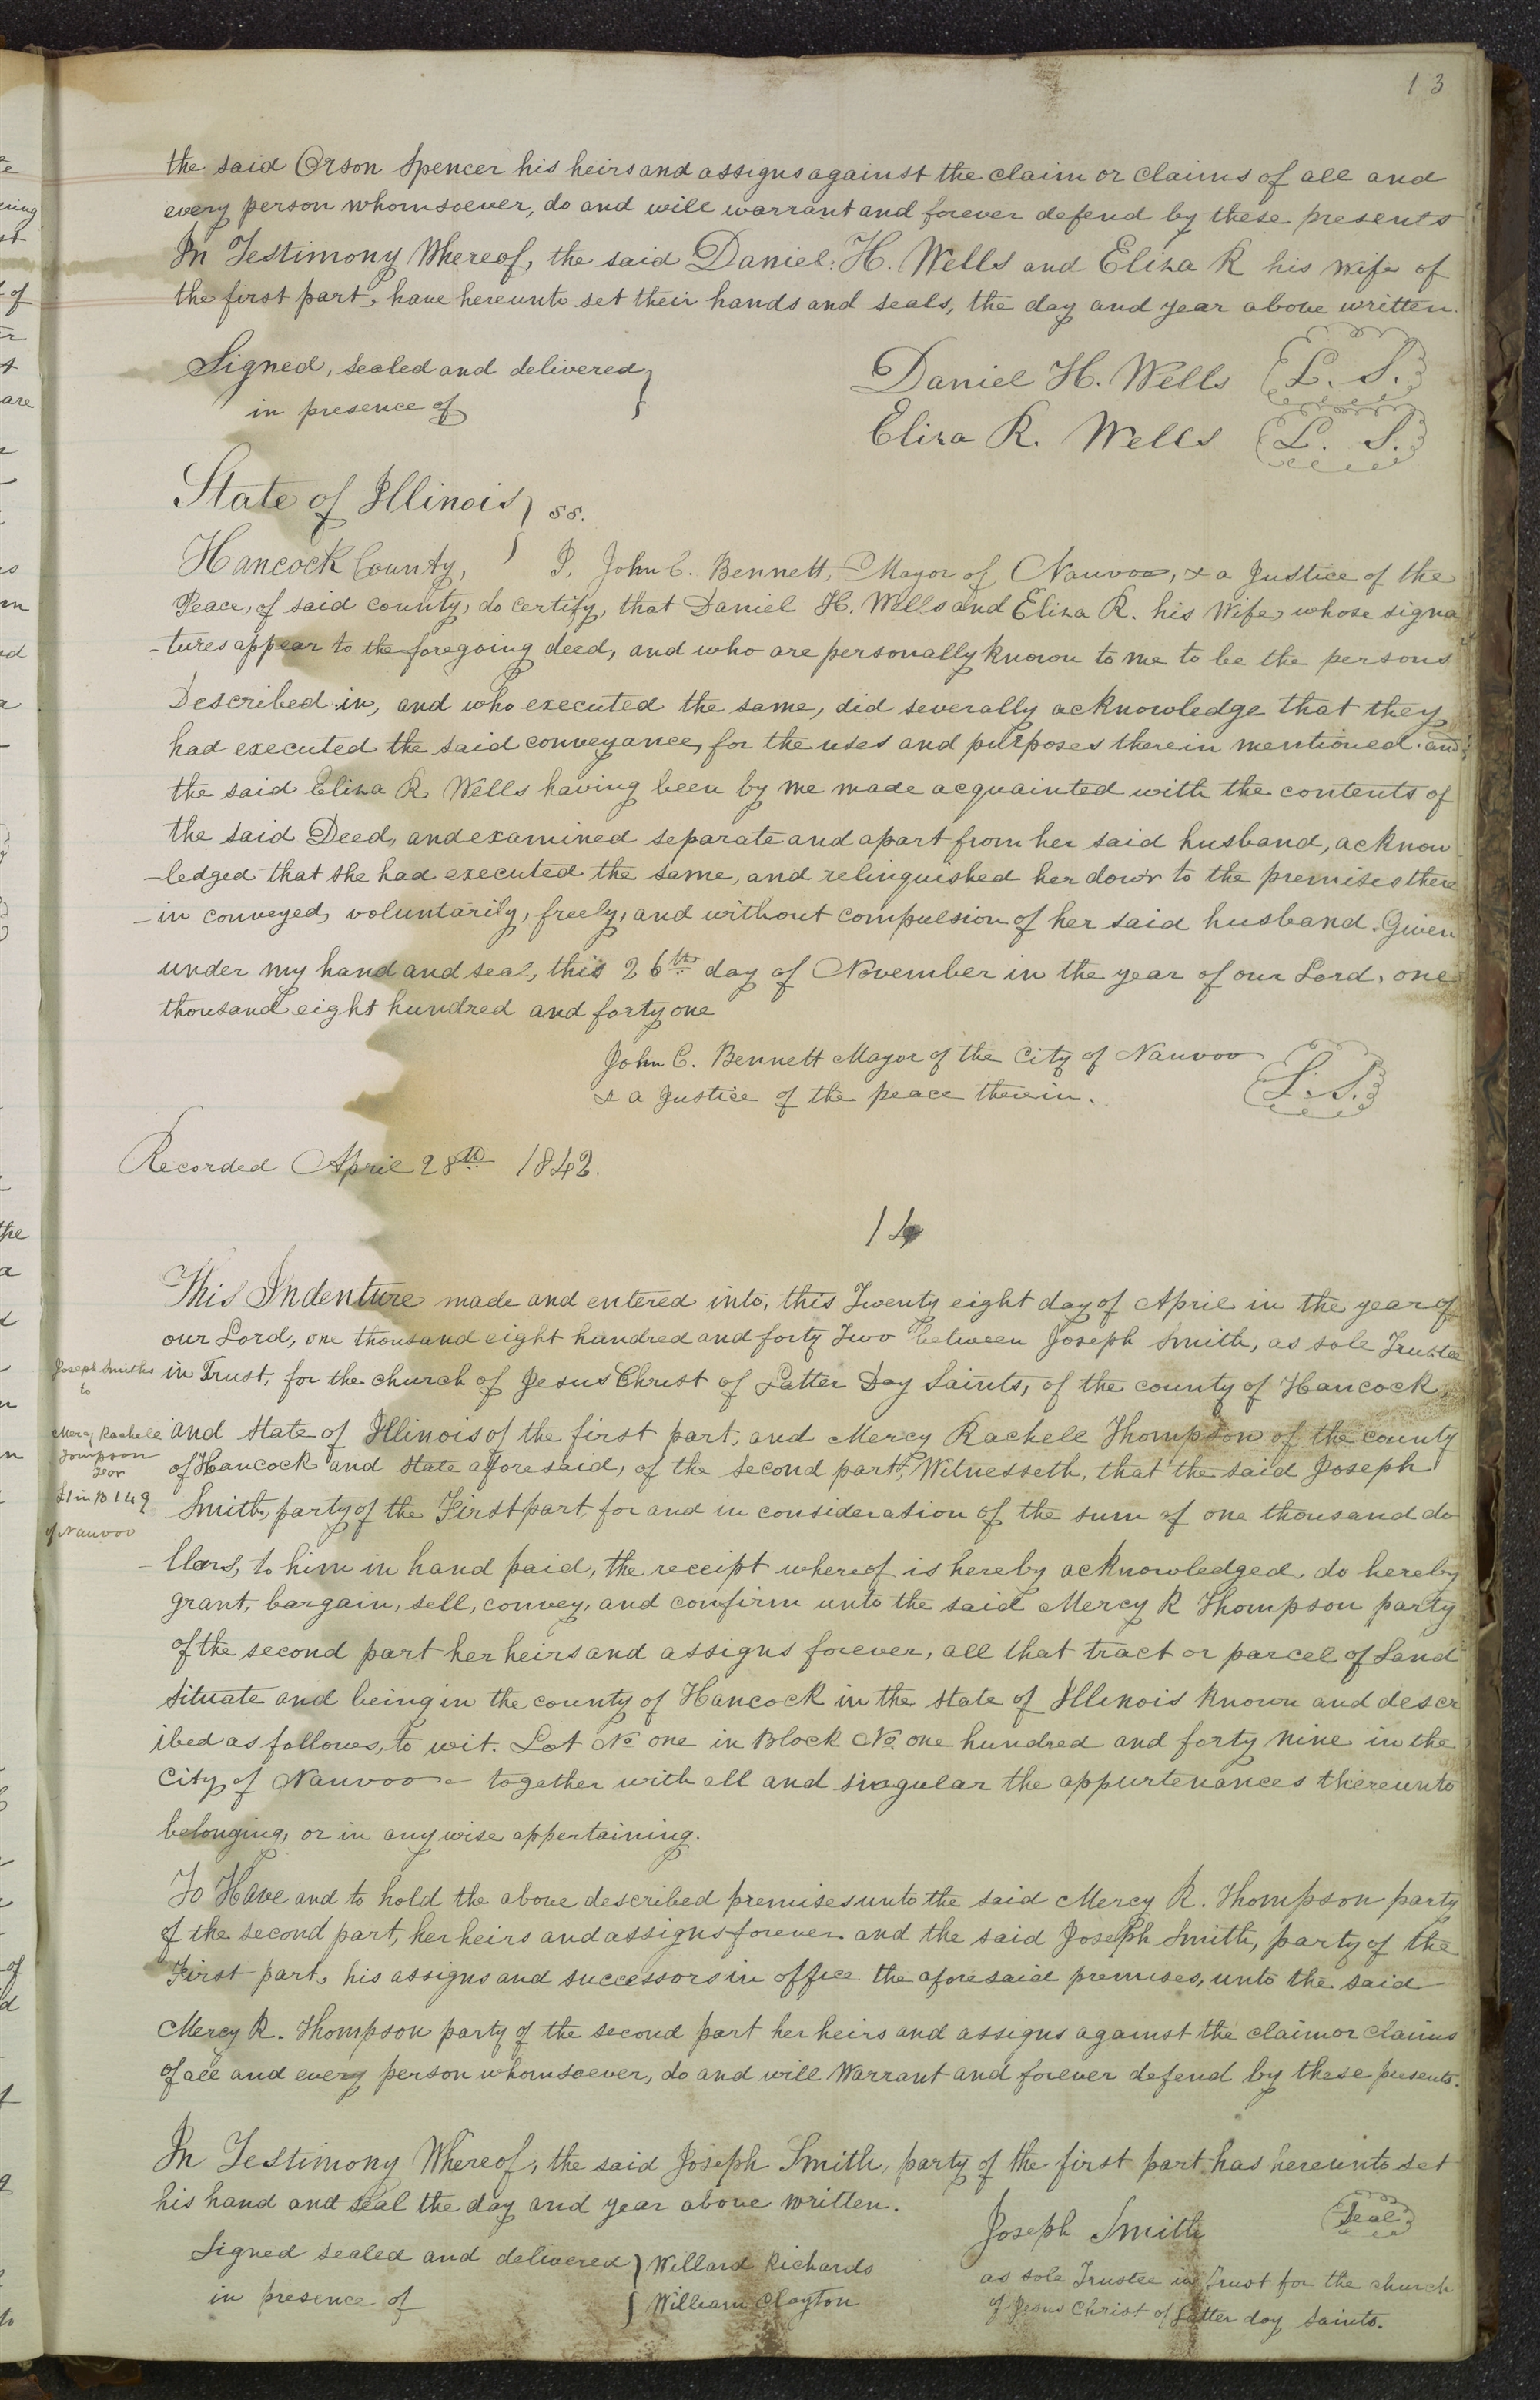 13
the said Orson Spencer his heirs and assigns against the claim or claims of all and
every person whomsoever, do and will warrant and forever defend by these presents
In Testimony Whereof, the said Daniel. H. Wells and Eliza R his wife of
the first part, have hereunto set their hands and seals, the day and year above written.
Signed, sealed and delivered
in presence of
Daniel H. Wells L. S.
Eliza R. Wells L. S.
State of Illinois } ss.
Hancock County, I, John C. Bennett, Mayor of Nauvoo, & a Justice of the
Peace, of said county, do certify, that Daniel H. Wells and Eliza R. his Wife, whose signa
-tures appear to the foregoing deed, and who are personally known to me to be the persons
Described in, and who executed the same, did severally acknowledge that they
had executed the said conveyance, for the uses and purposes therein mentioned. and
the said Eliza R Wells having been by me made acquainted with the contents of
the said Deed, and examined separate and apart from her said husband, acknow
-ledged that she had executed the same, and relinquished her dowr to the premises there
-in conveyed, voluntarily, freely, and without compulsion of her said husband. Given
under my hand and seal, this 26th day of November in the year of our Lord, one
thousand eight hundred and forty one
John C. Bennett Mayor of the City of Nauvoo
& a Justice of the peace therein. L. S.
Recorded April 28th 1842.
14
This Indenture made and entered into, this Twenty eight day of April in the year of
our Lord, one thousand eight hundred and forty Two between Joseph Smith, as sole Trustee
in Trust, for the church of Jesus Christ of Latter Day Saints, of the county of Hancock,
and State of Illinois of the first part, and Mercy Rachell Thompson of the county
of Hancock and State aforesaid, of the second part, Witnesseth, that the said Joseph
Smith, party of the First part, for and in consideration of the sum of one thousand do
-llars, to him in hand paid, the receipt whereof is hereby acknowledged, do hereby
grant, bargain, sell, convey, and confirm unto the said Mercy R Thompson party
of the second part her heirs and assigns forever, all that tract or parcel of Land
situate and being in the county of Hancock in the state of Illinois known and descr
ibed as follows, to wit. Lot No one in Block No one hundred and forty nine in the
City of Nauvoo together with all and singular the appurtenances thereunto
belonging, or in any wise appertaining.
Joseph Smiths
to
Mercy Rachell
Tompson
L1 in B 149
of Nauvoo
To Have and to hold the above described premises unto the said Mercy R. Thompson party
of the second part, her heirs and assigns forever and the said Joseph Smith, party of the
First part, his assigns and successors in office the aforesaid premises, unto the said
Mercy R. Thompson party of the second part her heirs and assigns against the claim or claims
of all and every person whomsoever, do and will Warrant and forever defend by these presents.
In Testimony Whereof, the said Joseph Smith, party of the first part has hereunto set
his hand and seal the day and year above written.
Joseph Smith Seal
as sole Trustee in Trust for the church
of Jesus Christ of Latter day Saints.
Signed sealed and delivered } Willard Richards
in presence of } William Clayton